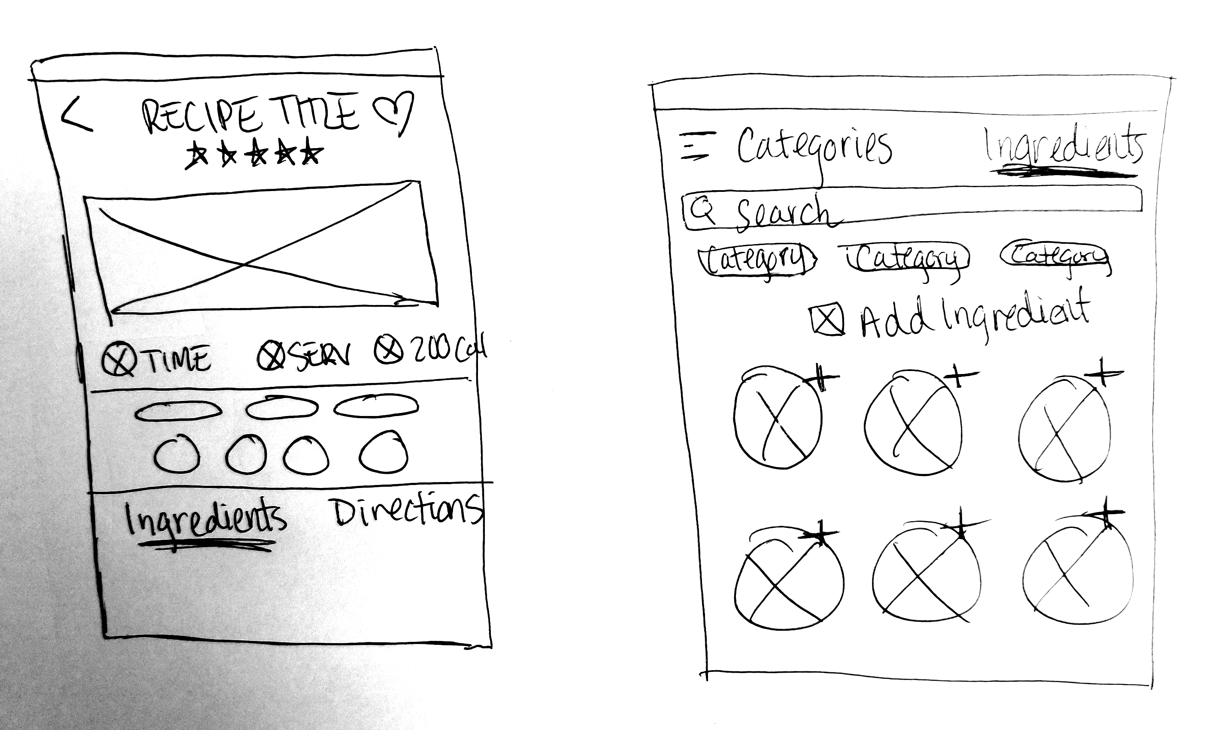 RECIPE TITLE
TIME SERV 200 Cal
Ingredients Directions
Categories Ingredients
Search
Category Category Category
Add Ingredient